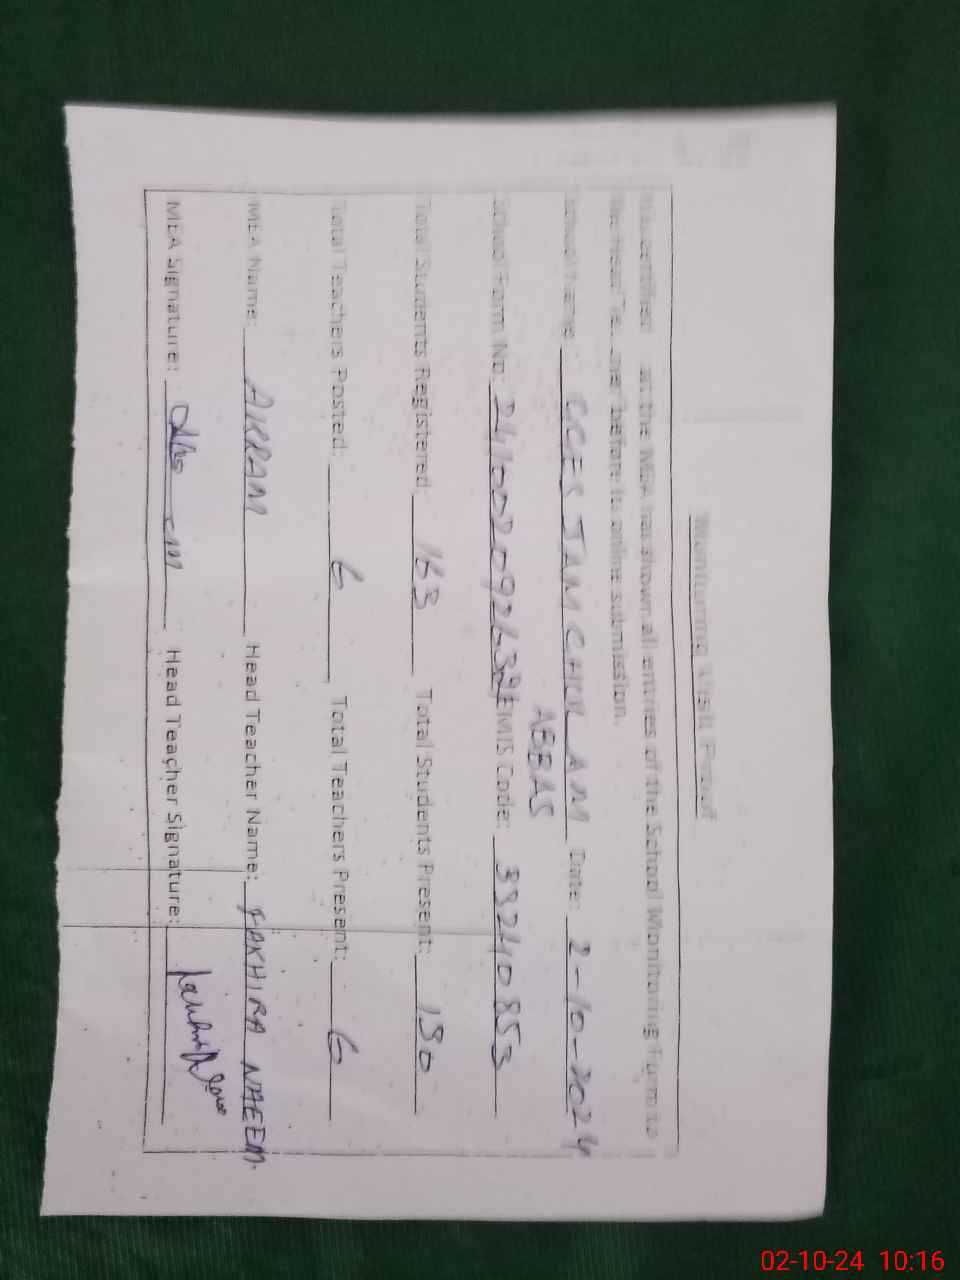 Monitoring Visit Proof
It is certified that the MEA has shown all entries of the School Monitoring Form to
the Head Teacher before its online submission.
School Name: GGES JAM GHULAM Date: 2-10-2024
ABBAS
School Form No: EMIS Code: 33240853
Total Students Registered: 163 Total Students Present: 130
Total Teachers Posted: 6 Total Teachers Present: 6
MEA Name: AKRAM Head Teacher Name: FAKHIRA NAEEM
MEA Signature: Head Teacher Signature:
02-10-24 10:16